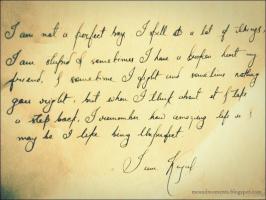 I am not a perfect boy. I fail at a lot of things.
I am stupid & sometimes I have a broken heart my
friend, & sometime I fight and sometime nothing
goes right. but when I think about it & take
a step back, I remember how amazing life is &
may be I like being Unperfect.
I am
meandmoments.blogspot.com